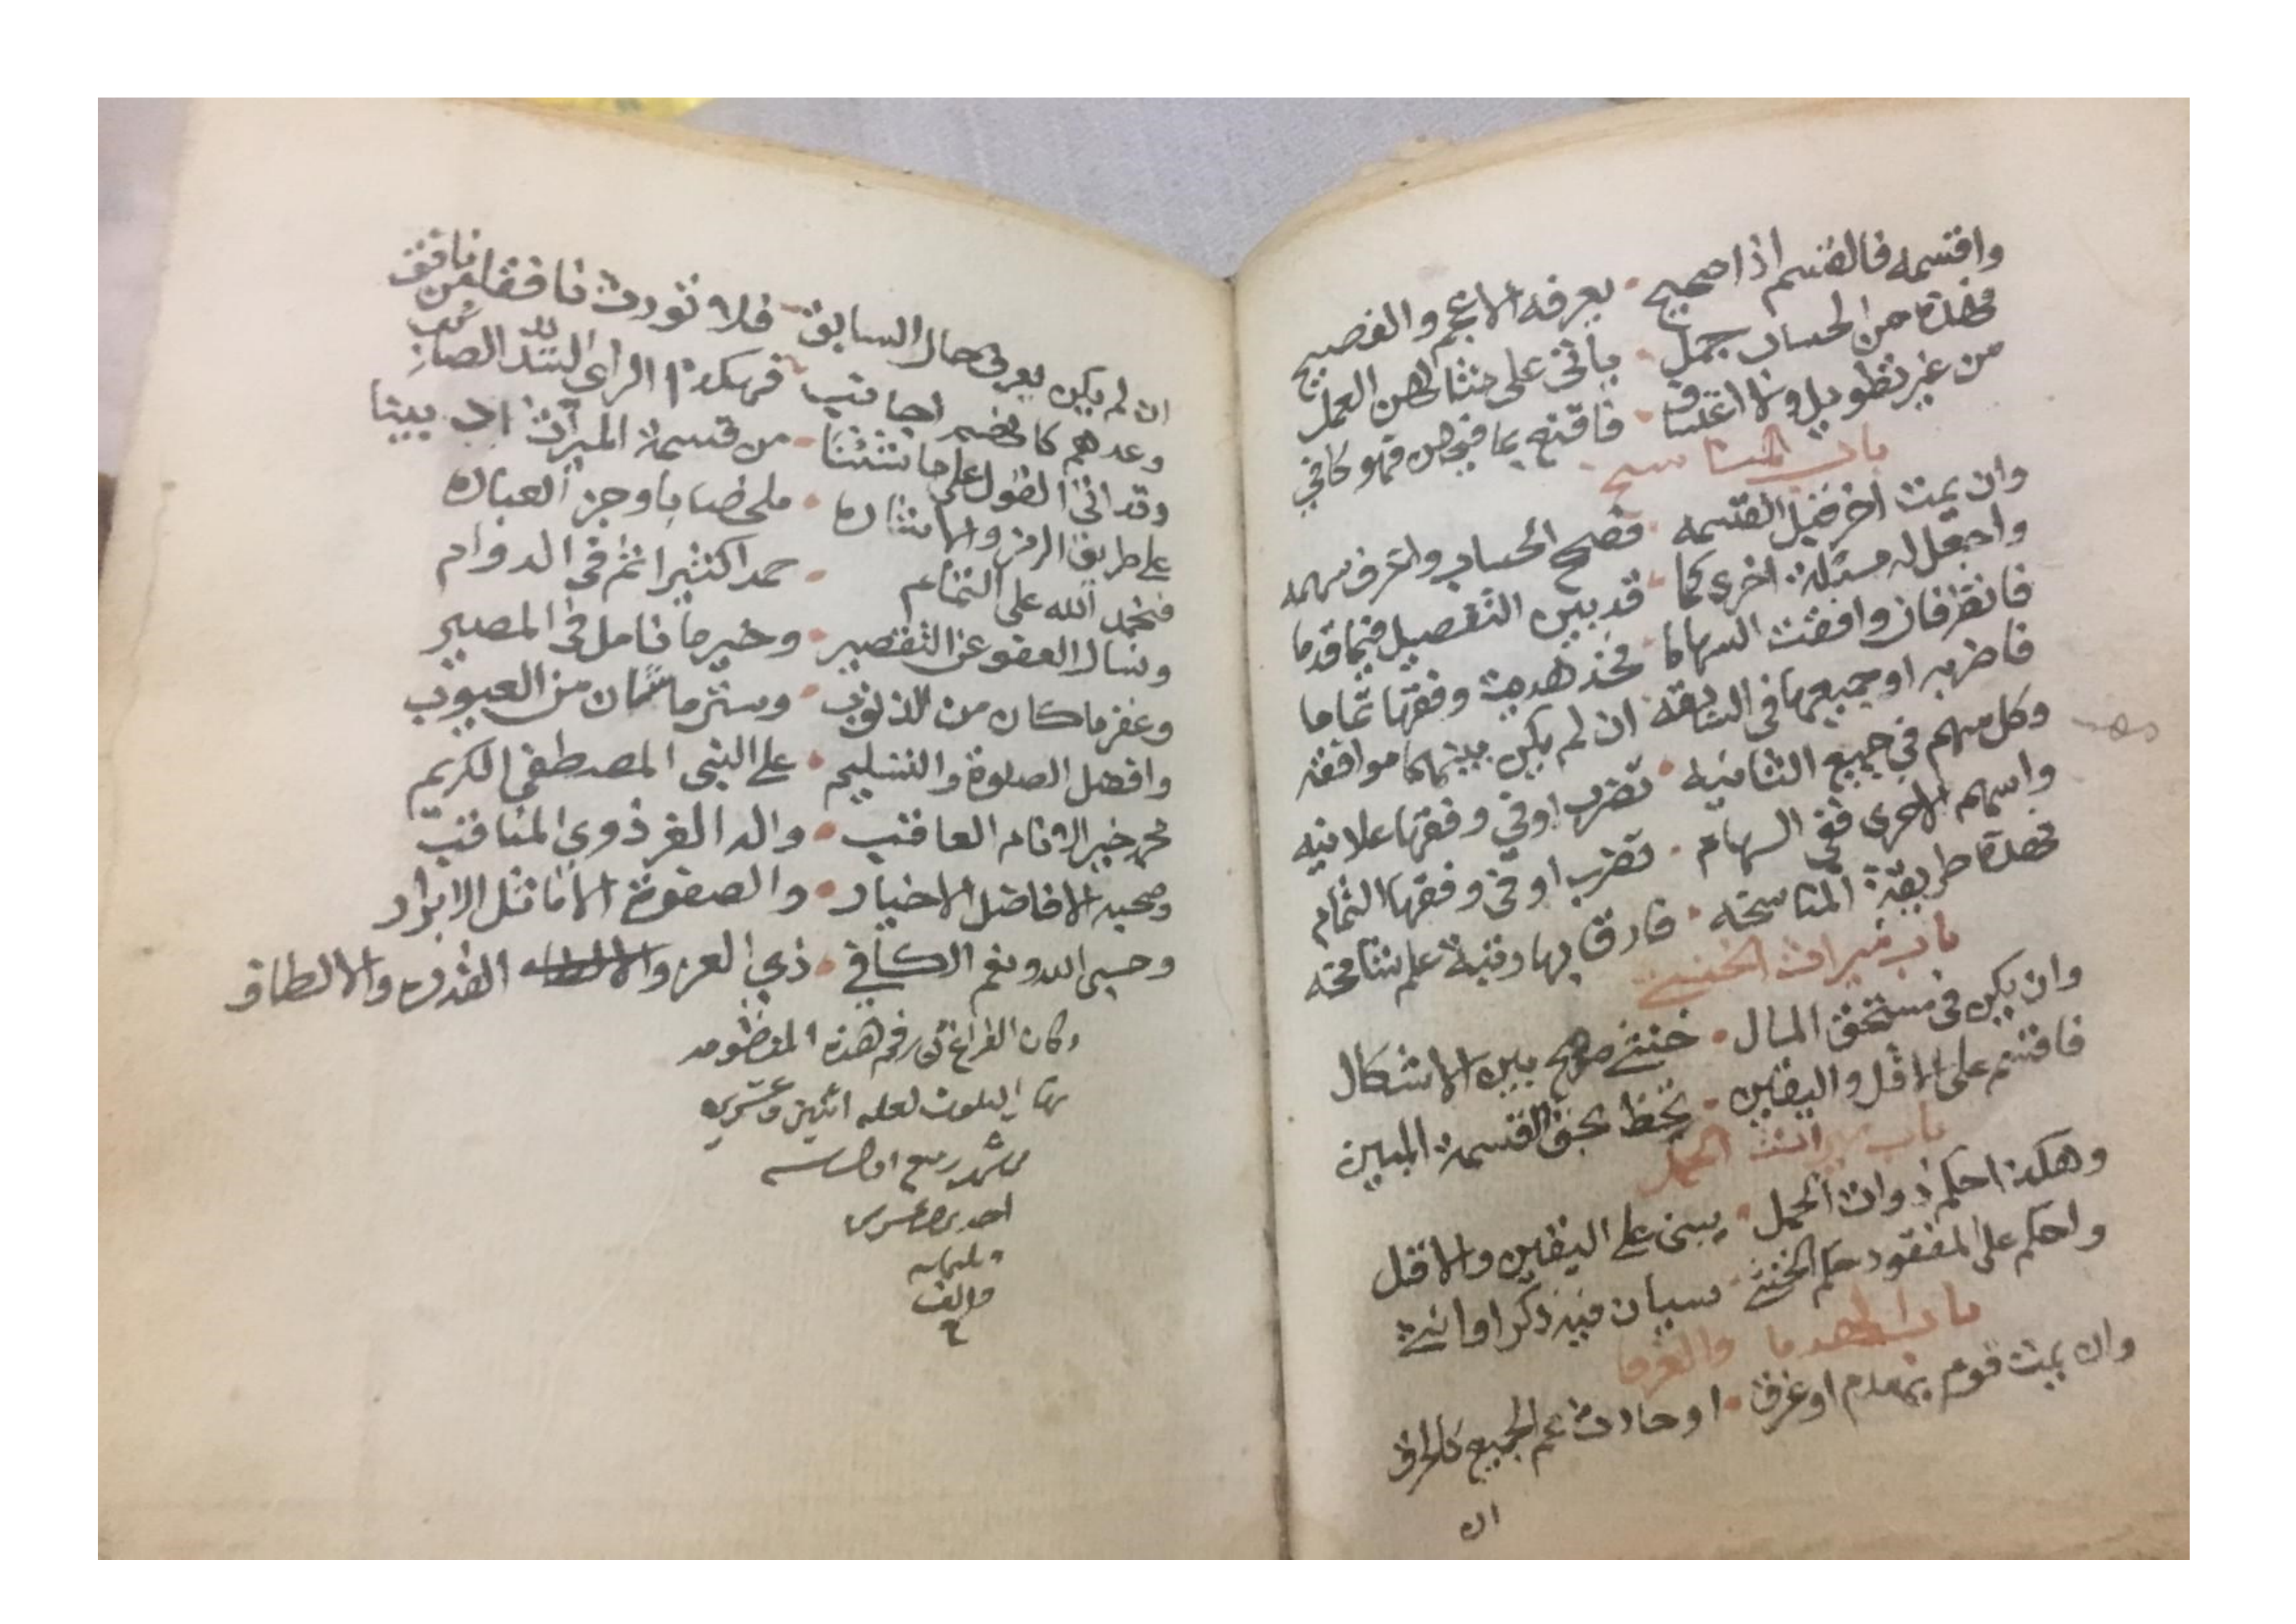 واقسمه فالقسم اذا صحيح • يعرفه الاعجم والفصيح
فهذه من الحساب جمل • ياتي على مثالهن العمل
من غير تطويل ولا اعتساف • فاقنع بما فيهن فهو كافي
باب المناسخ
وان يمت اخر قبل القسمه • فصحح الحساب واعرف سهمه
واجعل له مسئلة اخرى كما • قد بين التفصيل فيما قدما
فانظر فان وافقت السهاما • فخذ هديت وفقها تماما
فاضربه او جميعها في السابقه • ان لم يكن بينهما موافقه
وكل سهم في جميع الثانيه • تضرب او في وفقها علانيه
واسهم الاخرى ففي السهام • تضرب او في وفقها التمام
فهذه طريقة المناسخه • فارق بها رتبة علم شامخه
باب ميراث الخنثى
وان يكن في مستحق المال • خنثى صحيح بين الاشكال
فاقسم على الاقل واليقين • تحظ بحق القسمة المبين
باب ميراث الحمل
وهكذا احكم ذوات الحمل • يبنى على اليقين والاقل
واحكم على المفقود حكم الخنثى • سيان فيه ذكر او انثى
باب الهدما والغرقا
وان يمت قوم بهدم او غرق • او حادث عم الجميع كالحرق
ان
ان لم يكن يعرف حال السابق • فلا تورث زاهقا من زاهق
وعدهم كانهم اجانب • فهكذا الراي السديد الصائب
وقد اتى القول على ما شئنا • من قسمة الميراث اذ بينا
على طريق الرمز والاشاره • ملخصا باوجز العباره
فنحمد الله على التمام • حمدا كثيرا تم في الدوام
ونسال العفو عن التقصير • وخير ما نامل في المصير
وغفر ما كان من الذنوب • وستر ما شان من العيوب
وافضل الصلوة والتسليم • على النبي المصطفى الكريم
محمد خير الانام العاقب • واله الغر ذوي المناقب
وصحبه الافاضل الاخيار • والصفوة الاماثل الابرار
وحسبي الله ونعم الكافي • ذي العز والقدره والالطاف
وكان الفراغ في رقم هذه المنظومه
نهار الثلوث لعله اثنين وعشرين
شهر ربيع اول سنه
احدى وعشرين
وثلثمايه
والف